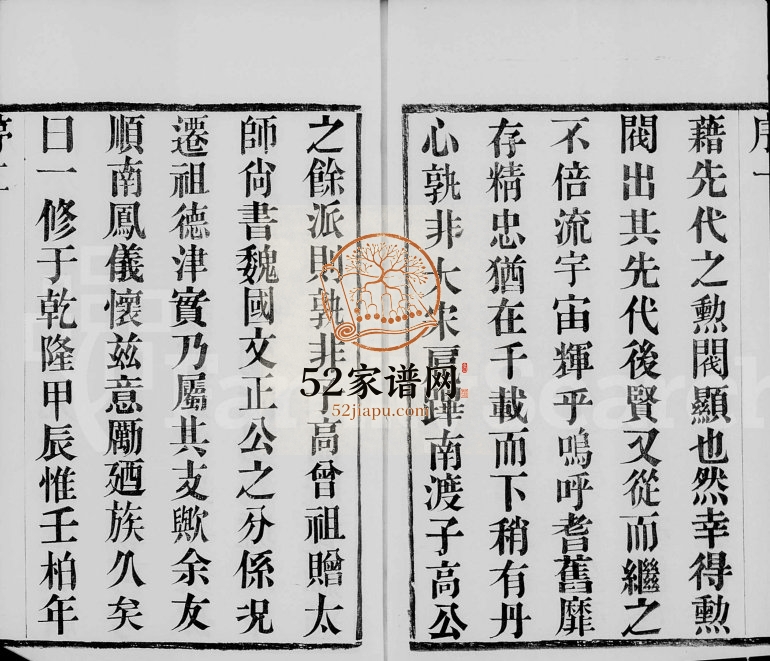 序一
藉先代之勲閥顯也然幸得勲
閥出其先代後賢又從而繼之
不倍流宇宙輝乎嗚呼耆舊靡
存精忠猶在千載而下稍有丹
心孰非大宋扈蹕南渡子高公
之餘派則孰非子高曾祖贈太
師尙書魏國文正公之分係况
遷祖德津實乃屬其支歟余友
順南鳳儀懷兹意勵廼族久矣
曰一修于乾隆甲辰惟壬柏年
序二
52家谱网
52jiapu.com